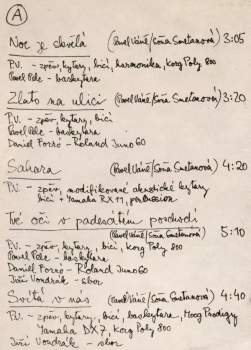 A
Noc je chvílá (Pavel Váně/Soňa Smetanová) 3:05
P.V. - zpěv, kytary, bicí, harmonika, Korg Poly 800
Pavel Pele - baskytara
Zlato na ulici (Pavel Váně/Soňa Smetanová) 3:20
P.V. - zpěv, kytary, bicí
Pavel Pele - baskytara
Daniel Forró - Roland Juno 60
Sahara (Pavel Váně/Soňa Smetanová) 4:20
P.V. - zpěv, modifikované akustické kytary
bicí + Yamaha RX11, percussion
Tvé oči v padesátém poschodí
(Pavel Váně/Soňa Smetanová) 5:10
P.V. - zpěv, kytary, bicí, Korg Poly 800
Pavel Pele - baskytara
Daniel Forró - Roland Juno 60
Jiří Vondrák - sbor
Světá v nás (Pavel Váně/Soňa Smetanová) 4:40
P.V. - zpěv, kytary, bicí, baskytara, Moog Prodigy
Yamaha DX7, Korg Poly 800
Jiří Vondrák - sbor